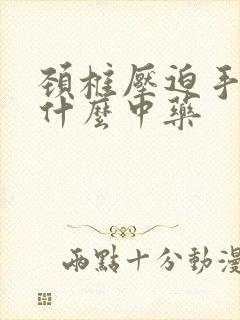 頚椎壓迫手
什麼中藥
兩點十分動漫